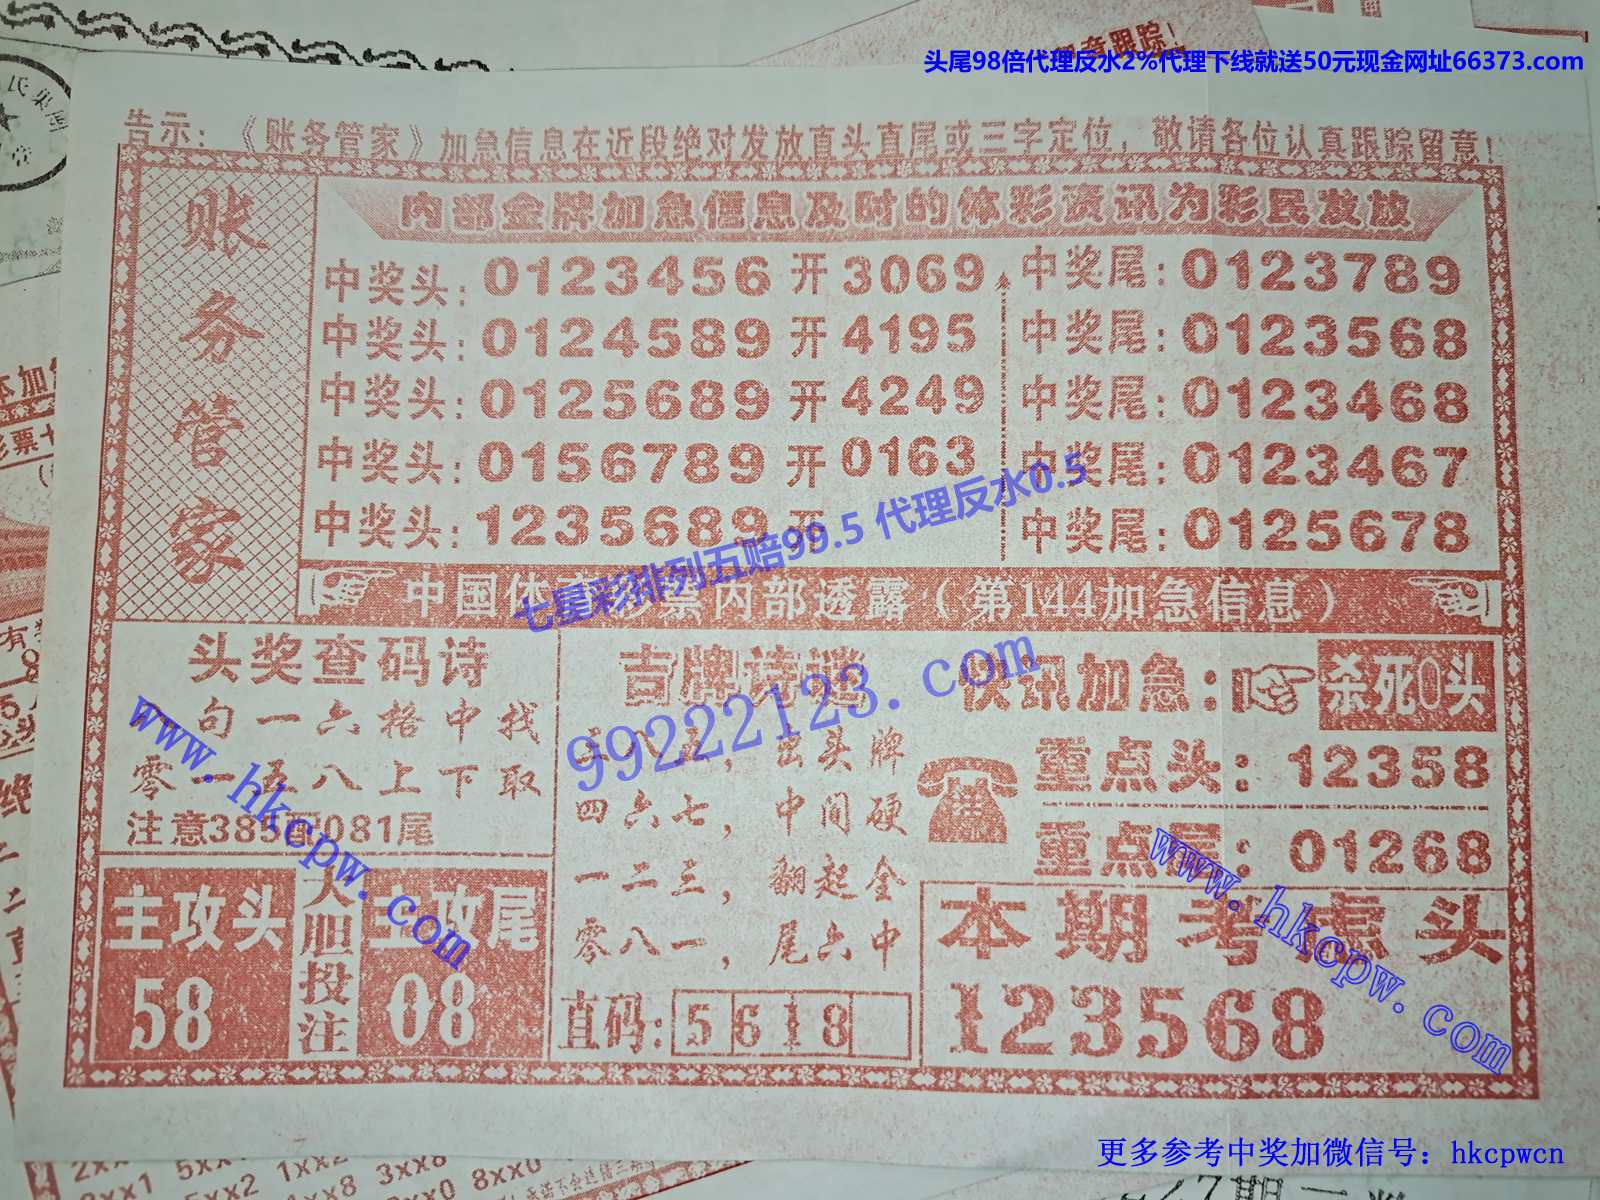 头尾98倍代理反水2%代理下线就送50元现金网址66373.com
告示：《账务管家》加急信息在近段绝对发放直头直尾或三字定位，敬请各位认真跟踪留意！
账务管家
内部金牌加急信息及时的体彩资讯为彩民发放
中奖头：0123456 开 3069 中奖尾：0123789
中奖头：0124589 开 4195 中奖尾：0123568
中奖头：0125689 开 4249 中奖尾：0123468
中奖头：0156789 开 0163 中奖尾：0123467
中奖头：1235689 开 中奖尾：0125678
七星彩排列五赔99.5 代理反水0.5
中国体 票内部透露（第144加急信息）
头奖查码诗
句一六格中找
零一五八上下取
注意385配081尾
主攻头
58
大胆投注
主攻尾
08
吉牌诗
八 ，出头牌
四六七，中间硬
一二三，翻起全
零八一，尾六中
直码：5618
快讯加急：
杀死0头
重点头：12358
重点尾：01268
本期考虑头
123568
99222123.com
www.hkcpw.com
www.hkcpw.com
更多参考中奖加微信号：hkcpwcn